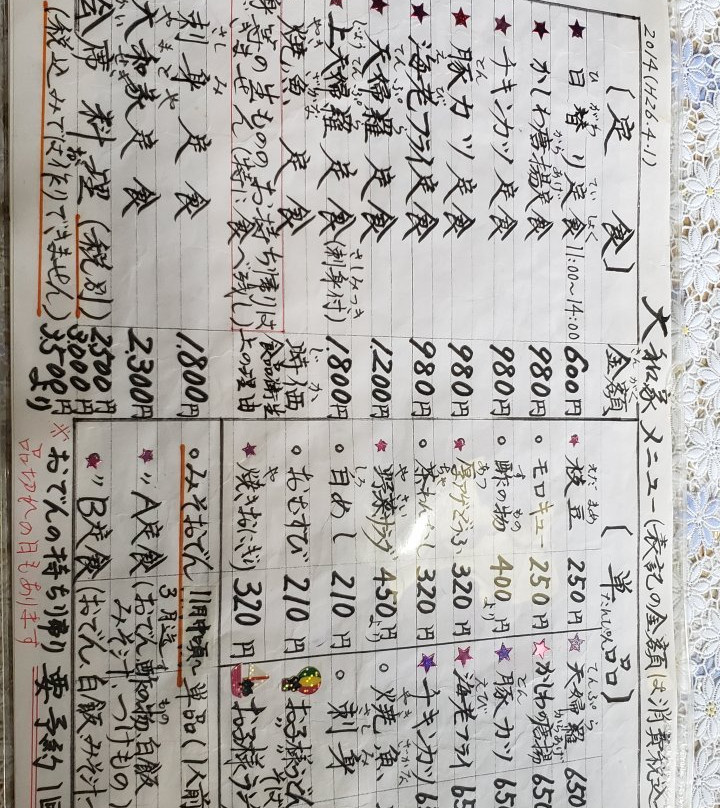 2014(H26.4.1)
大和家 メニュー(表記の金額は消費税込
〔定 食〕 金額
★日替り定食 11:00~14:00 600円
★かしわ唐揚定食 980円
★チキンカツ定食 980円
★豚カツ定食 980円
★海老フライ定食 980円
★天婦羅定食 1,200円
★上天婦羅定食(刺身付) 1,800円
焼魚定食 時価
刺身等の生もののお持ち帰りは
出来ません(特に食べ残し)
食品衛生
上の理由
刺身定食 1,800円
大和家定食 2,300円
会席料理(税別) 2500円
3000円
3,500円より
(税込みでは作りできません)
〔単品〕
★枝豆 250円
○モロキュー 250円
○酢の物 400円より
★厚アゲどうふ 320円
○茶わんむし 320円
★野菜サラダ 450円より
○白めし 210円
○おむすび 210円
★焼きおにぎり 320円
★天婦羅 650
★かしわの唐揚 650
★豚カツ 65
★海老フライ 65
★チキンカツ 65
○焼魚
○刺身
お子様うどん
お子様ラン
○みそおでん 11月中頃~3月迄 単品(1人前
★〃A定食(おでん、酢の物、白飯
みそ汁、つけもの)
★〃B定食(おでん、白飯、みそ汁、
※おでんの持ち帰り 要予約
品切れの日もあります